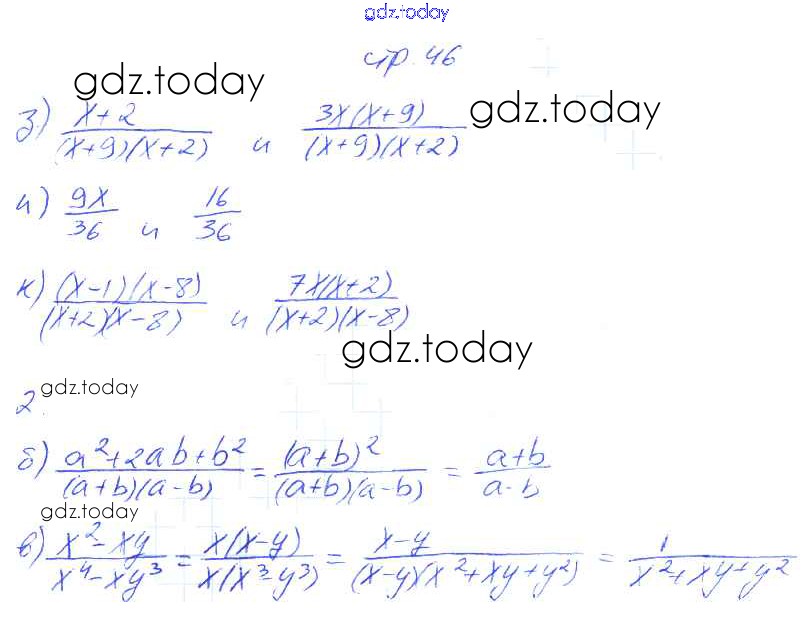 gdz.today
стр. 46
gdz.today
з) (x+2)/((x+9)(x+2)) и (3x(x+9))/((x+9)(x+2)) gdz.today
и) 9x/36 и 16/36
к) ((x-1)(x-8))/((x+2)(x-8)) и (7x(x+2))/((x+2)(x-8))
gdz.today
gdz.today
2.
б) (a²+2ab+b²)/((a+b)(a-b)) = (a+b)²/((a+b)(a-b)) = (a+b)/(a-b)
gdz.today
в) (x²-xy)/(x⁴-xy³) = (x(x-y))/(x(x³-y³)) = (x-y)/((x-y)(x²+xy+y²)) = 1/(x²+xy+y²)